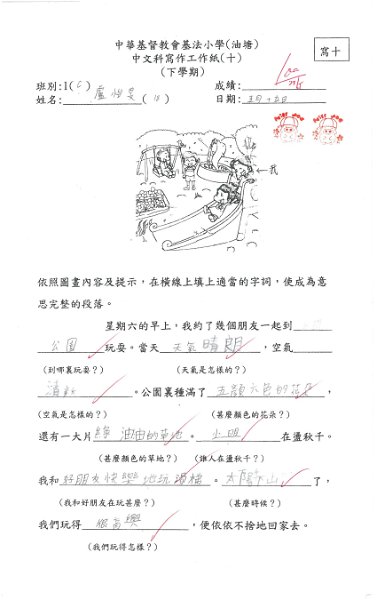 中華基督教會基法小學(油塘)
寫十
中文科寫作工作紙(十)
(下學期)
班別:1(C) 成績:
姓名: 盧 (18) 日期: 五月十五日
←我
依照圖畫內容及提示,在橫線上填上適當的字詞,使成為意
思完整的段落。
星期六的早上,我約了幾個朋友一起到
公園玩耍。當天天氣晴朗,空氣
(到哪裏玩耍?) (天氣是怎樣的?)
清新。公園裏種滿了五顏六色的花朵,
(空氣是怎樣的?) (甚麼顏色的花朵?)
還有一大片綠油油的草地。小明在盪秋千。
(甚麼顏色的草地?) (誰人在盪秋千?)
我和好朋友快樂地玩滑梯。太陽下山了,
(我和好朋友在玩甚麼?) (甚麼時候?)
我們玩得很高興,便依依不捨地回家去。
(我們玩得怎樣?)